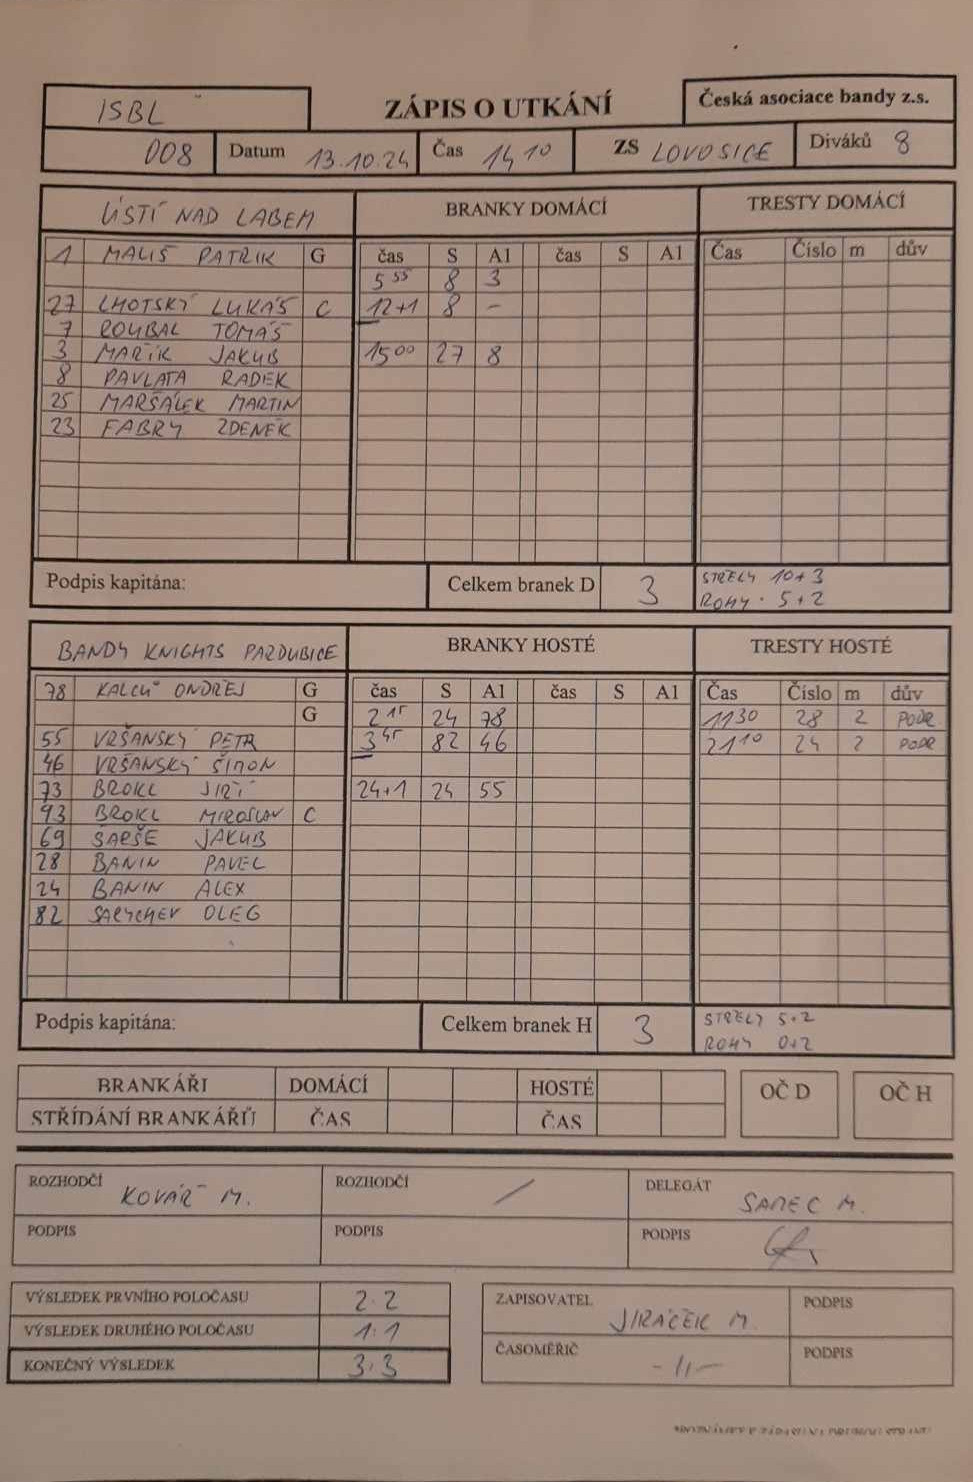 ISBL ZÁPIS O UTKÁNÍ Česká asociace bandy z.s.
008 Datum 13.10.24 Čas 14 10 ZS LOVOSICE Diváků 8
ÚSTÍ NAD LABEM BRANKY DOMÁCÍ TRESTY DOMÁCÍ
1 MALIŠ PATRIK G čas S A1 čas S A1 Čas Číslo m dův
5 55 8 3
27 LHOTSKÝ LUKÁŠ C 12+1 8 -
7 ROUBAL TOMÁŠ
3 MAŘÍK JAKUB 15 00 27 8
8 PAVLATA RADEK
25 MARŠÁLEK MARTIN
23 FABRY ZDENĚK
Podpis kapitána: Celkem branek D 3 STŘELY 10+3
ROHY · 5+2
BANDY KNIGHTS PARDUBICE BRANKY HOSTÉ TRESTY HOSTÉ
78 KALCŮ ONDŘEJ G čas S A1 čas S A1 Čas Číslo m dův
G 2 15 24 78 11 30 28 2 PODR
55 VRŠANSKÝ PETR 3 45 82 46 21 10 24 2 PODR
46 VRŠANSKÝ ŠIMON
73 BROKL JIŘÍ 24+1 24 55
93 BROKL MIROSLAV C
69 ŠARŠE JAKUB
28 BANIN PAVEL
24 BANIN ALEX
82 SARYCHEV OLEG
Podpis kapitána: Celkem branek H 3 STŘELY 5+2
ROHY 0+2
BRANKÁŘI DOMÁCÍ HOSTÉ OČ D OČ H
STŘÍDÁNÍ BRANKÁŘŮ ČAS ČAS
ROZHODČÍ KOVÁŘ M. ROZHODČÍ / DELEGÁT SAMEC M.
PODPIS PODPIS PODPIS
VÝSLEDEK PRVNÍHO POLOČASU 2:2 ZAPISOVATEL JIRÁČEK M. PODPIS
VÝSLEDEK DRUHÉHO POLOČASU 1:1
KONEČNÝ VÝSLEDEK 3:3 ČASOMĚŘIČ -11- PODPIS